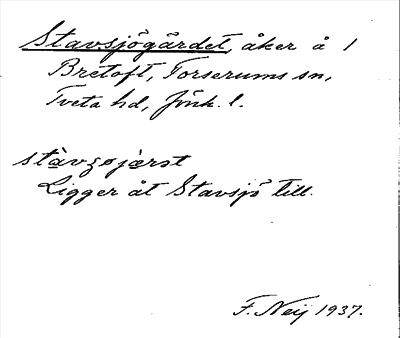 Stavsjögärdet, åker å 1
Bretoft, Torserums sn,
Tveta hd, Jönk. l.
Ligger åt Stavsjö till.
F. Neij 1937.